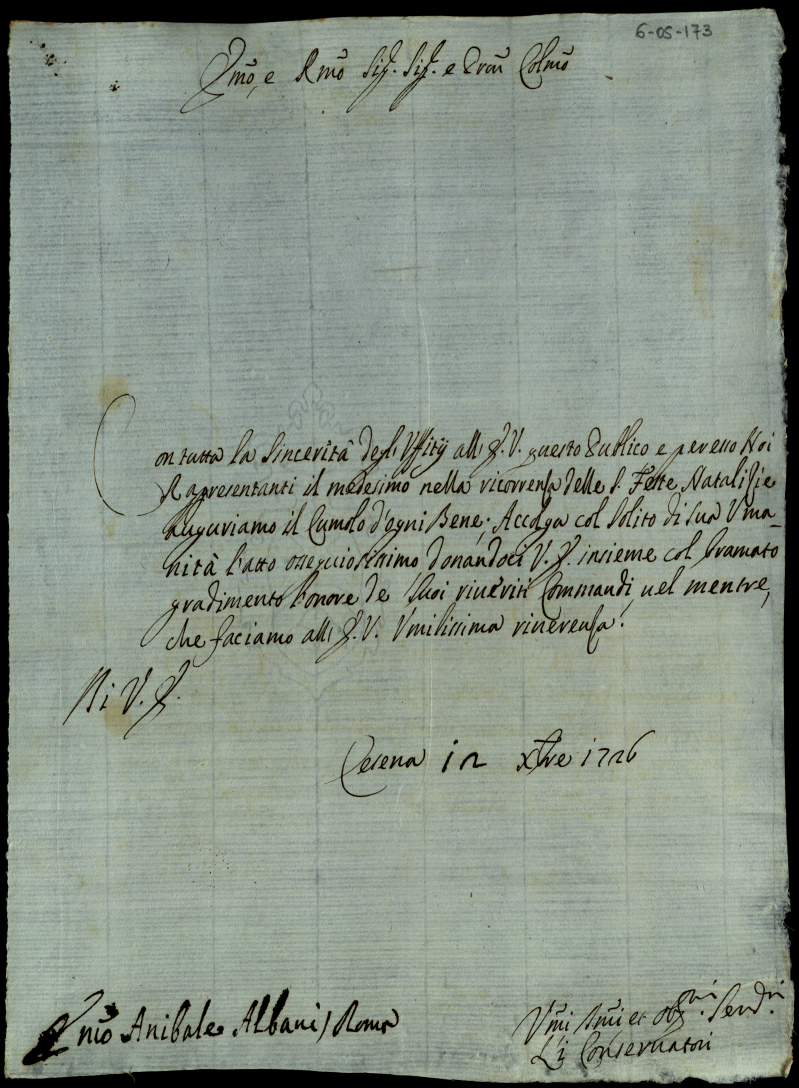 6-05-173
Emo, e Rmo Sig. Sig. e Pron Colmo
Con tutta la Sincerità degli Uffitij all' E. V. questo Publico e per esso Noi
Rapresentanti il medesimo nella ricorrenza delle S. Feste Natalizie
auguriamo il Cumolo d'ogni Bene; Accolga col solito di sua Uma-
nità l'atto ossequiosissimo donandoci V. E. insieme col bramato
gradimento l'onore de suoi riveriti Commandi, nel mentre,
che faciamo all' E. V. Umilissima riverenza.
Di V. E.
Cesena 12 Xbre 1726
Emo Anibale Albani / Roma
Umi Dmi et Obmi Servri
Li Conservatori